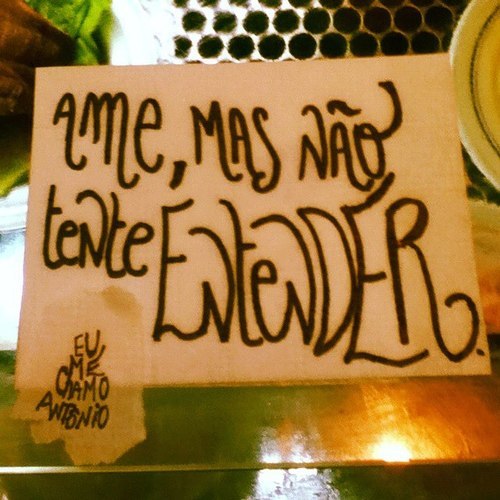 AME, MAS NÃO
tente ENtENDER.
EU
ME
CHAMO
ANTÔNIO